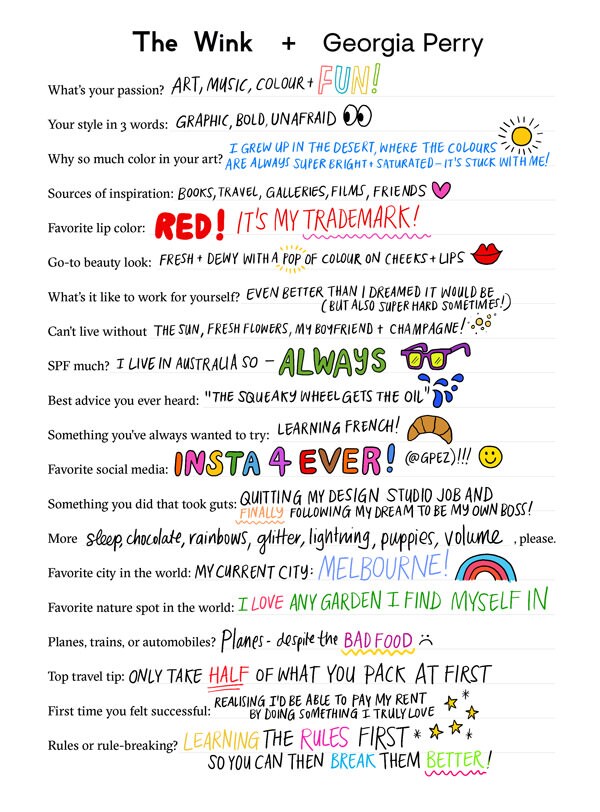 The Wink + Georgia Perry
What's your passion? ART, MUSIC, COLOUR + FUN!
Your style in 3 words: GRAPHIC, BOLD, UNAFRAID
Why so much color in your art? I GREW UP IN THE DESERT, WHERE THE COLOURS
ARE ALWAYS SUPER BRIGHT + SATURATED - IT'S STUCK WITH ME!
Sources of inspiration: BOOKS, TRAVEL, GALLERIES, FILMS, FRIENDS
Favorite lip color: RED! IT'S MY TRADEMARK!
Go-to beauty look: FRESH + DEWY WITH A POP OF COLOUR ON CHEEKS + LIPS
What's it like to work for yourself? EVEN BETTER THAN I DREAMED IT WOULD BE
(BUT ALSO SUPER HARD SOMETIMES!)
Can't live without THE SUN, FRESH FLOWERS, MY BOYFRIEND + CHAMPAGNE!
SPF much? I LIVE IN AUSTRALIA SO - ALWAYS
Best advice you ever heard: "THE SQUEAKY WHEEL GETS THE OIL"
Something you've always wanted to try: LEARNING FRENCH!
Favorite social media: INSTA 4 EVER! (@GPEZ)!!!
Something you did that took guts: QUITTING MY DESIGN STUDIO JOB AND
FINALLY FOLLOWING MY DREAM TO BE MY OWN BOSS!
More sleep, chocolate, rainbows, glitter, lightning, puppies, volume , please.
Favorite city in the world: MY CURRENT CITY: MELBOURNE!
Favorite nature spot in the world: I LOVE ANY GARDEN I FIND MYSELF IN
Planes, trains, or automobiles? Planes - despite the BAD FOOD
Top travel tip: ONLY TAKE HALF OF WHAT YOU PACK AT FIRST
First time you felt successful: REALISING I'D BE ABLE TO PAY MY RENT
BY DOING SOMETHING I TRULY LOVE
Rules or rule-breaking? LEARNING THE RULES FIRST
SO YOU CAN THEN BREAK THEM BETTER!